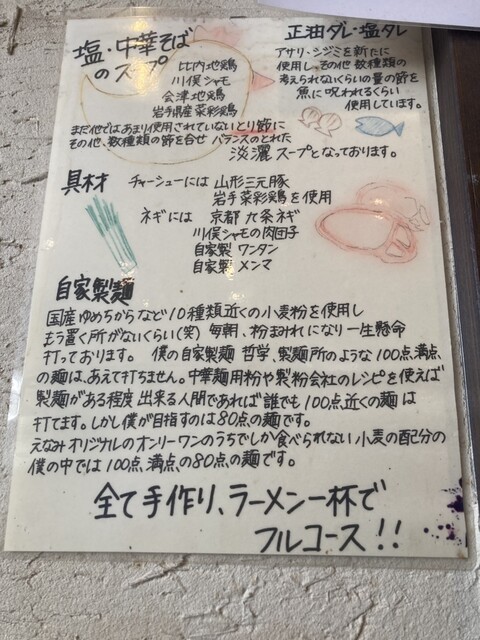 塩・中華そば
のスープ
比内地鶏
川俣シャモ
会津地鶏
岩手県産菜彩鶏
まだ他ではあまり使用されていないとり節に
その他、数種類の節を合せ バランスのとれた
淡麗スープとなっております。
正油ダレ・塩ダレ
アサリ・シジミを新たに
使用し、その他 数種類の
考えられないくらいの量の節を
魚に呪われるくらい
使用しています。
具材
チャーシューには 山形三元豚
岩手菜彩鶏を使用
ネギには 京都 九条ネギ
川俣シャモの肉団子
自家製 ワンタン
自家製 メンマ
自家製麺
国産ゆめちからなど10種類近くの小麦粉を使用し
もう置く所がないくらい(笑) 毎朝、粉まみれになり一生懸命
打っております。 僕の自家製麺 哲学、製麺所のような100点満点
の麺は、あえて打ちません。中華麺用粉や製粉会社のレシピを使えば
製麺がある程度 出来る人間であれば誰でも100点近くの麺は
打てます。しかし僕が目指すのは80点の麺です。
えなみオリジナルのオンリーワンのうちでしか食べられない小麦の配分の
僕の中では100点、満点の80点の麺です。
全て手作り、ラーメン一杯で
フルコース!!